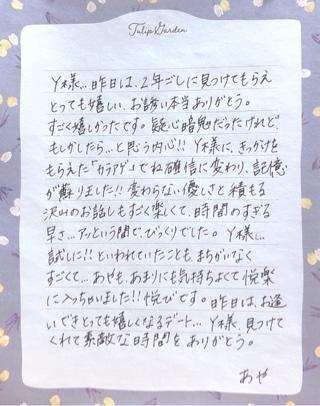 Tulip Garden
Y様… 昨日は、2年ごしに見つけてもらえ
とっても嬉しい、お誘い本当ありがとう。
すごく嬉しかったです。疑心暗鬼だったけれど、
もしかしたら…と思う内心!! Y様に、きっかけを
もらえた「カラアゲ」でね確信に変わり、記憶
が蘇りました!! 変わらない優しさと積もる
沢山のお話しもすごく楽しくて、時間のすぎる
早さ…アッという間で、びっくりでした。Y様に…
試しに!! といわれていたことも、まちがいなく
すごくて…あやも、あまりにも気持ちよくて悦楽
に入っちゃいました!! 悦びです。昨日は、お逢
いできとっても嬉しくなるデート… Y様、見つけて
くれて素敵な時間を ありがとう。
あや